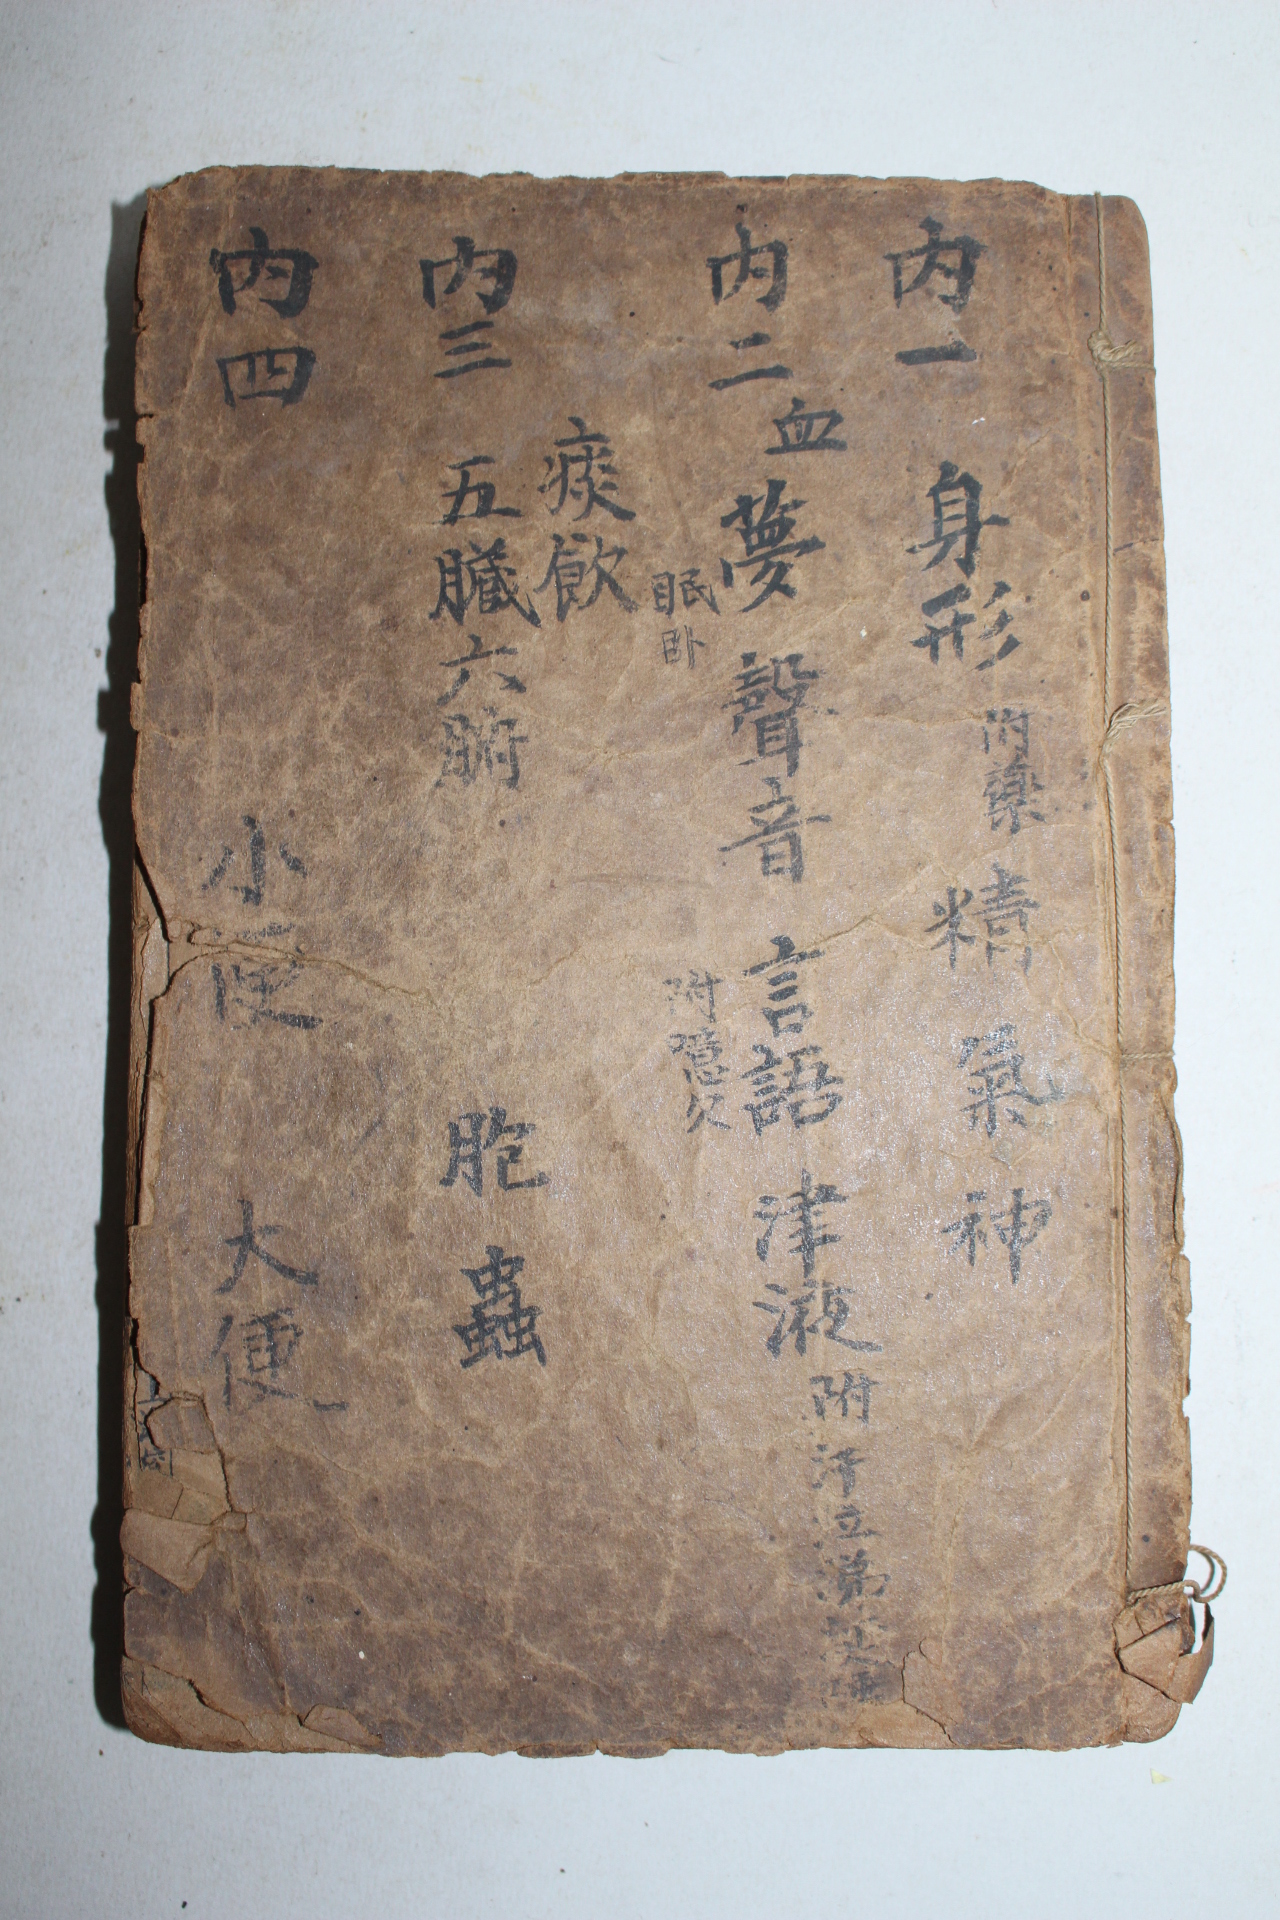 內一 身形 附藥 精 氣 神
內二 血 夢 聲音 言語 津液 附汗
眠卧 附噫欠
痰飮
內三 五臟六腑 胞 蟲
內四 小便 大便